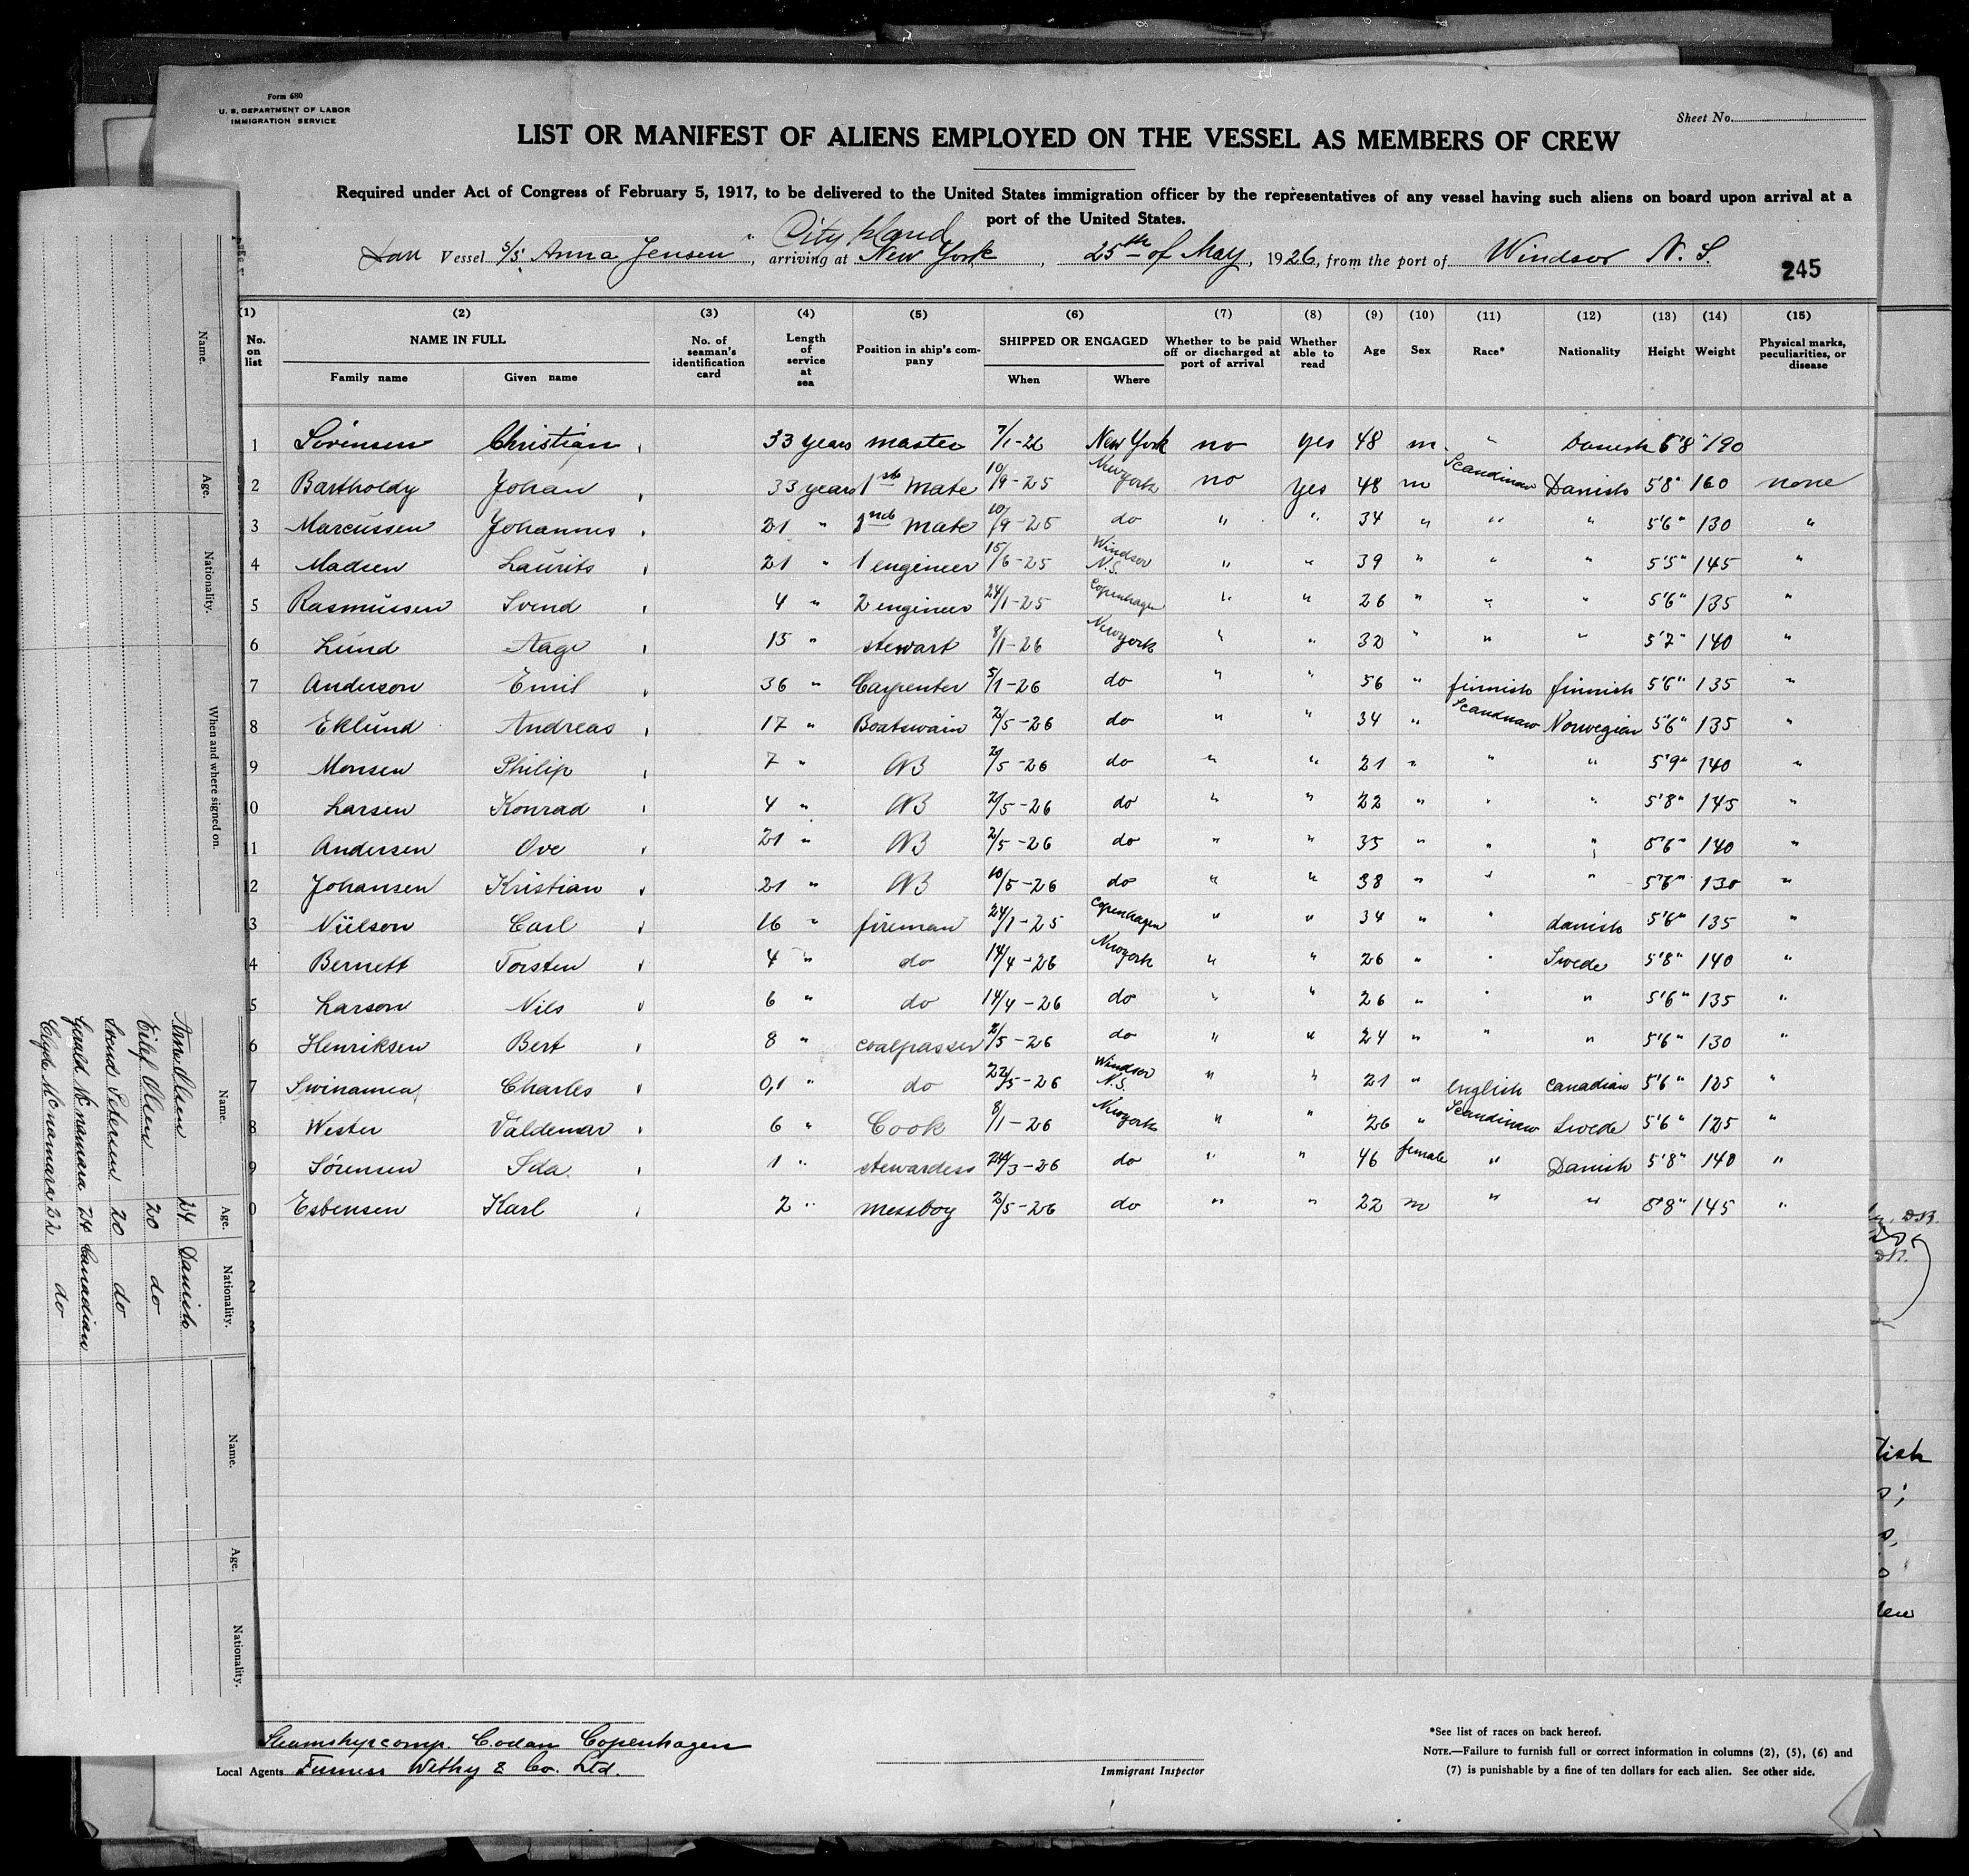 Form 680
U. S. DEPARTMENT OF LABOR
IMMIGRATION SERVICE
Sheet No.
LIST OR MANIFEST OF ALIENS EMPLOYED ON THE VESSEL AS MEMBERS OF CREW
Required under Act of Congress of February 5, 1917, to be delivered to the United States immigration officer by the representatives of any vessel having such aliens on board upon arrival at a
port of the United States.
City Island
Dan Vessel s/s "Anna Jensen", arriving at New York, 25th of May, 1926, from the port of Windsor N. S.
245
(1) (2) (3) (4) (5) (6) (7) (8) (9) (10) (11) (12) (13) (14) (15)
No. on list NAME IN FULL Family name Given name No. of seaman's identification card Length of service at sea Position in ship's company SHIPPED OR ENGAGED When Where Whether to be paid off or discharged at port of arrival Whether able to read Age Sex Race* Nationality Height Weight Physical marks, peculiarities, or disease
1 Sörensen Christian 33 years master 7/1-26 New York no yes 48 m. " Danish 5'8" 190
2 Bartholdy Johan 33 years 1st Mate 10/9-25 Newyork no yes 48 m Scandinav Danish 5'8" 160 none
3 Marcussen Johannes 21 " 2nd Mate 10/9-25 do " " 34 " " " 5'6" 130 "
4 Madsen Laurits 21 " 1 engineer 15/6-25 Windsor N.S. " " 39 " " " 5'5" 145 "
5 Rasmussen Svend 4 " 2 engineer 24/1-25 Copenhagen " " 26 " " " 5'6" 135 "
6 Lund Aage 15 " stewart 8/1-26 Newyork " " 32 " " " 5'7" 140 "
7 Anderson Emil 36 " Carpenter 5/1-26 do " " 56 " finnish finnish 5'6" 135 "
8 Eklund Andreas 17 " Boatswain 2/5-26 do " " 34 " Scandnaw Norwegian 5'6" 135 "
9 Monsen Philip 7 " AB 2/5-26 do " " 21 " " " 5'9" 140 "
10 Larsen Konrad 4 " AB 2/5-26 do " " 22 " " " 5'8" 145 "
11 Andersen Ove 21 " AB 2/5-26 do " " 35 " " " 5'6" 140 "
2 Johansen Kristian 21 " AB 10/5-26 do " " 38 " " " 5'6" 130 "
3 Nielson Carl 16 " fireman 24/1-25 Copenhagen " " 34 " " danish 5'6" 135 "
4 Bernett Torsten 4 " do 14/4-26 Newyork " " 26 " " Swede 5'8" 140 "
5 Larson Nils 6 " do 14/4-26 do " " 26 " " " 5'6" 135 "
6 Henriksen Bert 8 " coalpasser 2/5-26 do " " 24 " " " 5'6" 130 "
7 Swinamea Charles 0,1 " do 22/5-26 Windsor N.S. " " 21 " english Canadian 5'6" 125 "
8 Wester Valdemar 6 " Cook 8/1-26 Newyork " " 26 " Scandinav Swede 5'6" 125 "
9 Sørensen Ida 1 " stewardess 24/3-26 do " " 46 female " Danish 5'8" 140 "
0 Esbensen Karl 2 " messboy 2/5-26 do " " 22 m " " 5'8" 145 "
Steamshipcomp. Codan Copenhagen
Local Agents Furness Withy & Co. Ltd.
Immigrant Inspector
*See list of races on back hereof.
NOTE.—Failure to furnish full or correct information in columns (2), (5), (6) and
(7) is punishable by a fine of ten dollars for each alien. See other side.
Name. Age. Nationality. When and where signed on.
Name. Age. Nationality.
Arne Olsen 24 Danish
Eilef Olsen 20 do
Svend Petersen 20 do
Gerald McNamara 24 Canadian
Clyde McNamara 22 do
Name. Age. Nationality.